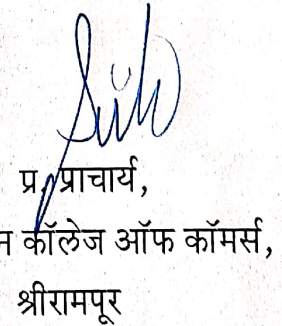 प्र. प्राचार्य,
कॉलेज ऑफ कॉमर्स,
श्रीरामपूर